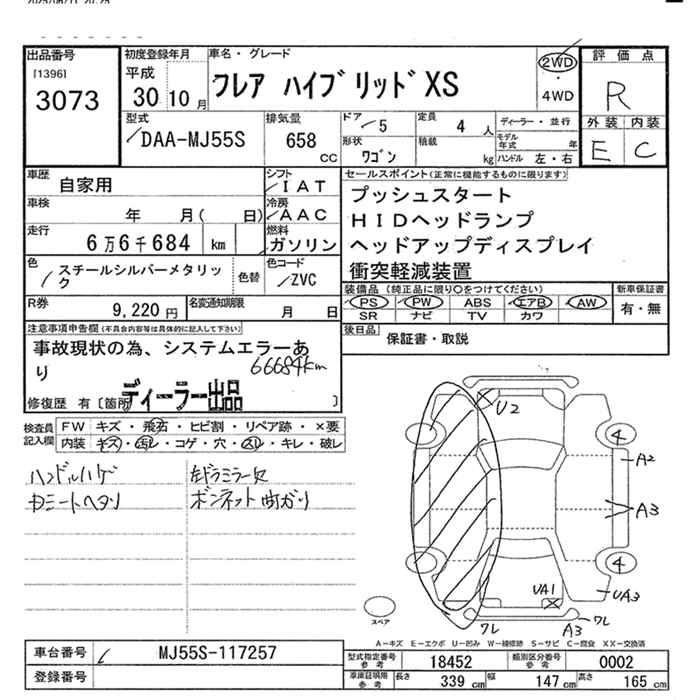 出品番号
[1396]
3073
初度登録年月
平成
30 10月
車名・グレード
フレア ハイブリッドXS
2WD
・
4WD
評価点
R
外装 内装
E C
型式
DAA-MJ55S
排気量
658
cc
ドア
5
定員
4 人
形状
ワゴン
積載
kg
ディーラー・並行
モデル年式 年
ハンドル 左・右
車歴
自家用
シフト
IAT
車検
年 月( 日)
冷房
AAC
走行
6万6千684 km
燃料
ガソリン
色
スチールシルバーメタリック
色替
色コード
ZVC
R券
9,220円
名変通知期限
月 日
セールスポイント(正常に機能するものに限ります)
プッシュスタート
HIDヘッドランプ
ヘッドアップディスプレイ
衝突軽減装置
装備品(純正品に限り○をつけてください)
PS PW ABS エアB AW
SR ナビ TV カワ
新車保証書
有・無
後日品
保証書・取説
注意事項申告欄(不具合内容等は具体的に記入して下さい)
事故現状の為、システムエラーあり
66684km
修復歴 有〔箇所 〕
ディーラー出品
検査員記入欄
FW キズ・飛石・ヒビ割・リペア跡・×要
内装 キズ・汚レ・コゲ・穴・スレ・キレ・破レ
ハンドルハゲ
左ドラミラー欠
ボンネット曲がり
U2
4
A2
A3
4
UA3
UA1
ワレ
A3
ワレ
スペア
A−キズ E−エクボ U−凹み W−補修跡 S−サビ C−腐食 XX−交換済
車台番号
MJ55S-117257
登録番号
型式指定番号
参考
18452
類別区分番号
参考
0002
車庫証明用
参考
長さ 339 cm
幅 147 cm
高さ 165 cm